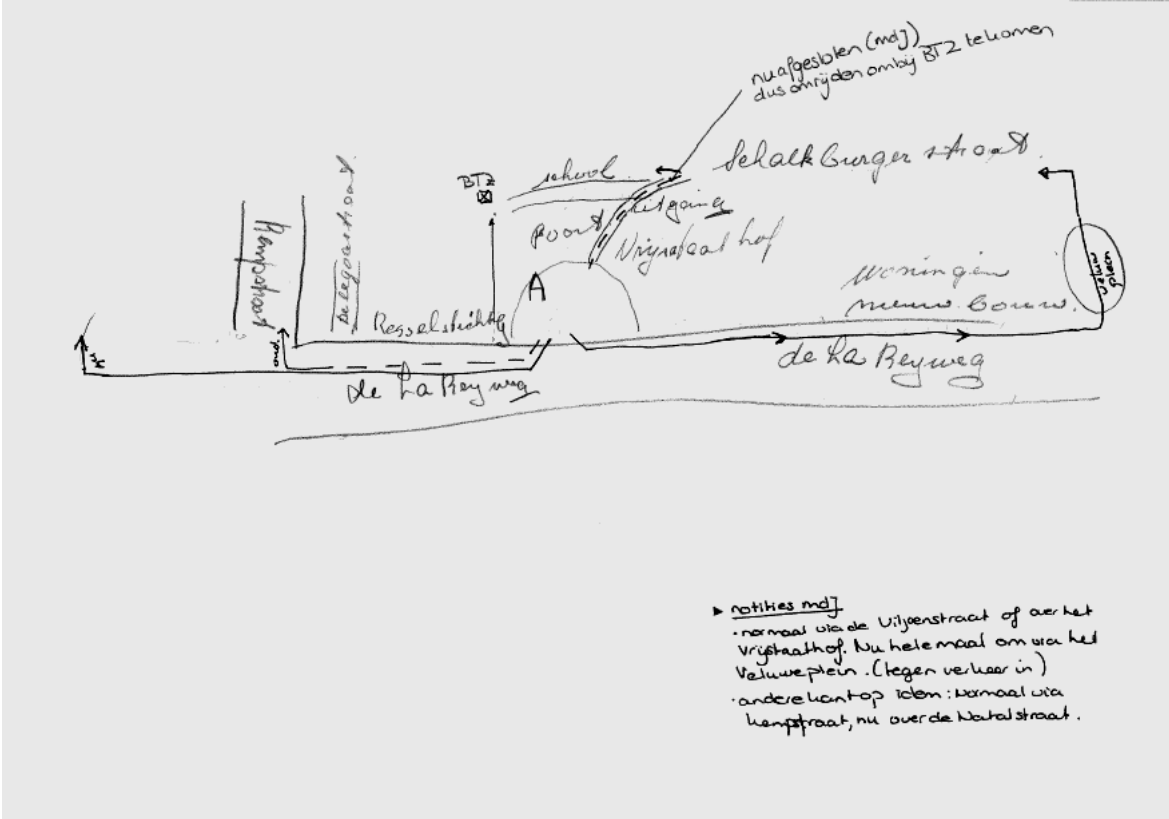 nu afgesloten (mdJ)
dus omrijden om bij BTZ te komen
Schalkburgerstraat.
school
BTZ
uitgang
poort
Vrijstaat hof
Kempstraat
Delagoastraat
A
woningen
nieuw bouw.
Veluwe
plein
Resselstichting
oud.
de La Reyweg
de La Reyweg
▸ notities mdJ
·normaal via de Viljoenstraat of over het
Vrijstaathof. Nu helemaal om via het
Veluweplein. (tegen verkeer in)
·andere kant op idem: Normaal via
kempstraat, nu over de Natalstraat.